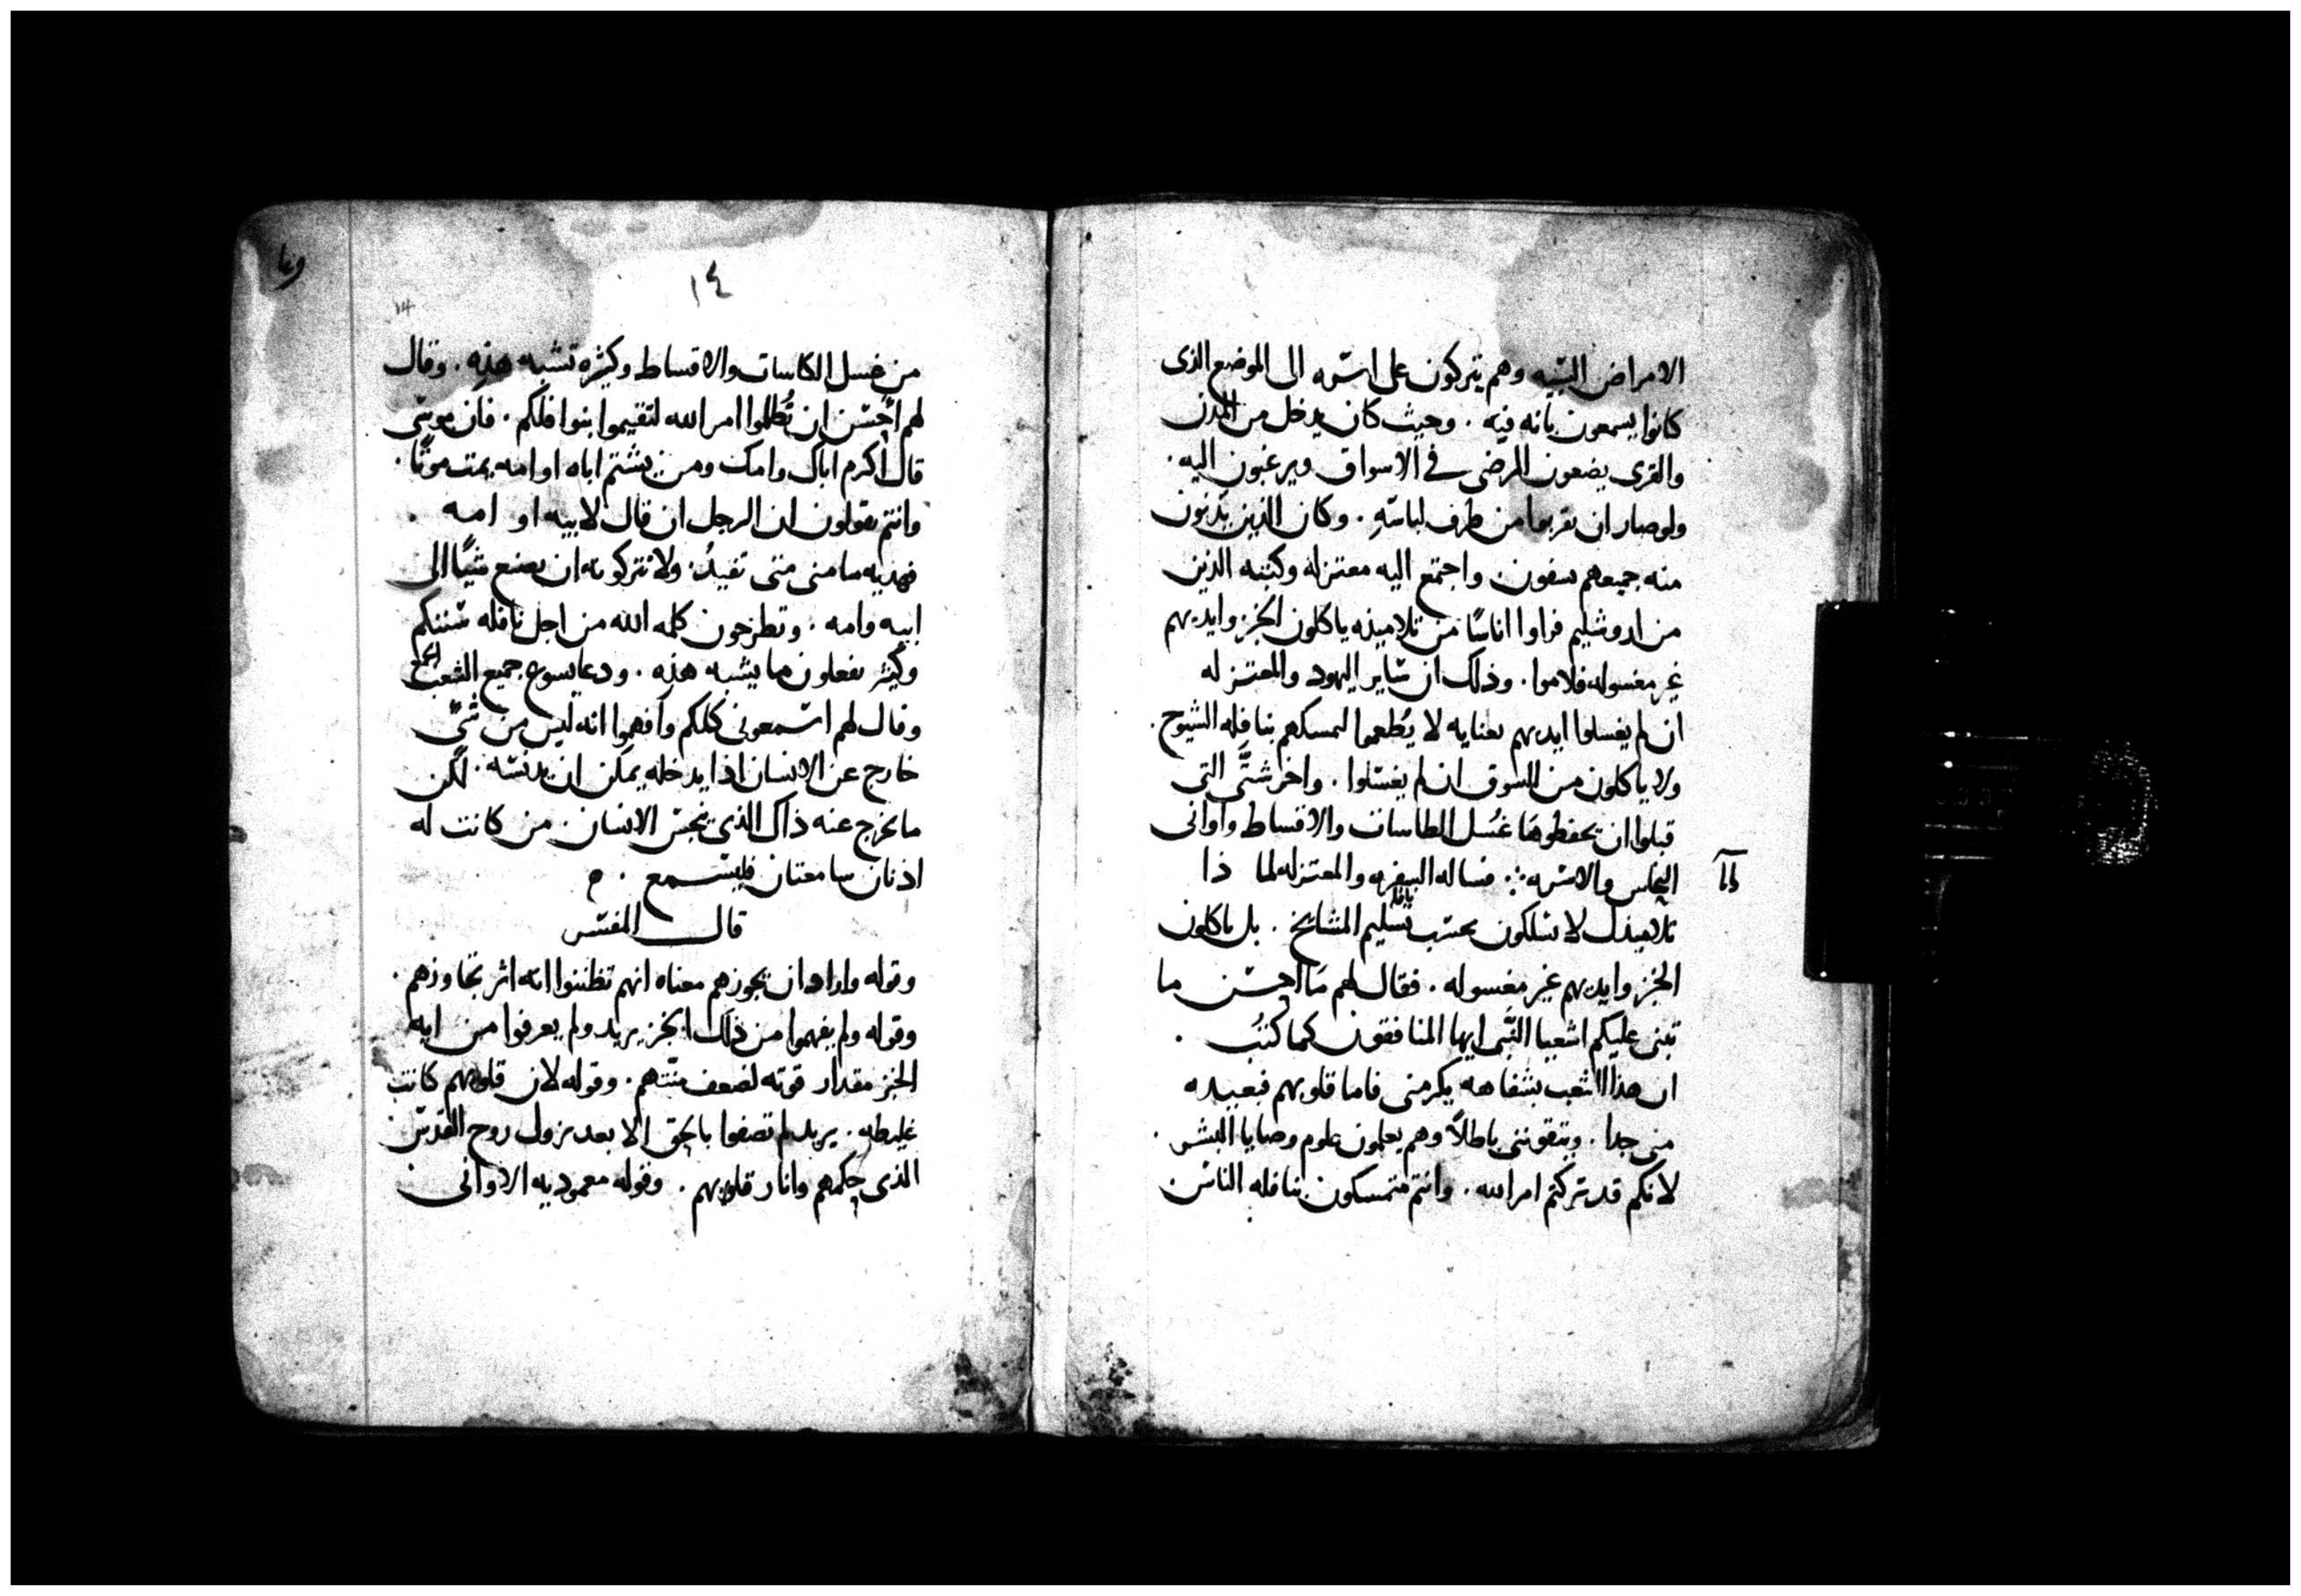 الامراض السيه وهم يتركون على اسره الى الموضع الذى
كانوا يسمعون بانه فيه . وحيث كان يدخل من المدن
والقرى يضعون المرضى فى الاسواق ويرغبون اليه .
ولو صار ان يقربوا من طرف لباسه . وكان الذين يدنون
منه جميعهم يشفون . واجتمع اليه معتزله وكتبه الذين
من اروشليم فراوا اناسًا من تلاميذه ياكلون الخبز وايديهم
غير مغسوله فلاموا . وذلك ان ساير اليهود والمعتزله
ان لم يغسلوا ايديهم بعنايه لا يُطعموا لتمسكهم بنافله الشيوخ .
ولا ياكلون من السوق ان لم يغسلوا . واخر شتَّى التى
قبلوا ان يحفظوها غُسل الطاسات والاقساط واوانى
النحاس والاسره ∴ فساله السفره والمعتزله لما ذا
تلاميذك لا يسلكون بحسب تسليم المشائخ . بل ياكلون
الخبز وايديهم غير مغسوله . فقال لهم ما احسن ما
تبنى عليكم اشعيا النَّبى ايها المنافقون كما كُتبُ .
ان هذا الشعب بشفاهه يكرمنى فاما قلوبهم فبعيده
منى جدا . ويتقوننى باطلاً وهم يعلمون علوم وصايا البشر .
لانكم قد تركتم امر الله . وانتم متمسكون بنافله الناس
١٤
من غسل الكاسات والاقساط وكثيره تشبه هذه . وقال
لهم احسن ان تُظلموا امر الله لتقيموا نوافلكم . فان موسى
قال اكرم اباك وامك ومن يشتم اباه او امه يمت موتًا .
وانتم يقولون ان الرجل ان قال لابيه او امه .
فهديه ما منى متى تفيدُ . ولا تتركونه ان يصنع شيًا الى
ابيه وامه . وتطرحون كلمه الله من اجل نافله سننكم
وكثير تفعلون ما يشبه هذه . ودعا يسوع جميع الشعب
وقال لهم اسمعونى كلكم وافهموا انه ليس من شىً
خارج عن الانسان اذا يدخله يمكن ان يدنسه . لكن
ما يخرج عنه ذاك الذى ينجس الانسان . من كانت له
اذنان سامعتان فليسمع . ه
قال المفسر
وقوله واراد ان يجوزهم معناه انهم تظننوا انه اثر تجاوزهم .
وقوله ولم يفهموا من ذلك الخبز يريد ولم يعرفوا من ايه
الخبز مقدار قوته لضعف منتهم . وقوله لان قلوبهم كانت
غليظه . يريد لم تصفوا بالحق الا بعد نزول روح القدس
الذى حكمهم وانار قلوبهم . وقوله معموديه الاوانى